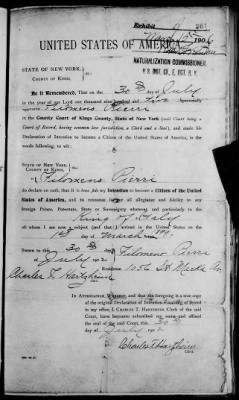 Exhibit A
UNITED STATES OF AMERICA.
NATURALIZATION COMMISSIONER,
STATE OF NEW YORK,
COUNTY OF KINGS,
Be it Remembered, That on the 30th day of July
in the year of our Lord one thousand nine hundred and personally
appeared Filomeno Pierri
in the County Court of Kings County, State of New York (said Court being a
Court of Record, having common law jurisdiction, a Clerk and a Seal), and made his
Declaration of Intention to become a Citizen of the United States of America, in the
words following to wit:
STATE OF NEW YORK,
COUNTY OF KINGS,
I, Filomeno Pierri
do declare on oath, that it is bona fide my Intention to become a Citizen of the United
States of America, and to renounce forever all allegiance and fidelity to any
foreign Prince, Potentate, State or Sovereignty whatever, and particularly to the
King of Italy
of whom I am now a subject (and that) I arrived in the United States on the
1st day of March
Sworn to this 30th
day of July 190
Filomeno Pierri
Residence 1056 St Marks Av
Charles T. Hartzheim
IN ATTESTATION WHEREOF, and that the foregoing is a true copy
of the original Declaration of Intention remaining of Record
in my office I, CHARLES T. HARTZHEIM, Clerk of the said
Court, have hereunto subscribed my name and affixed
the seal of the said Court, this 30th
day of July 190
Charles T. Hartzheim